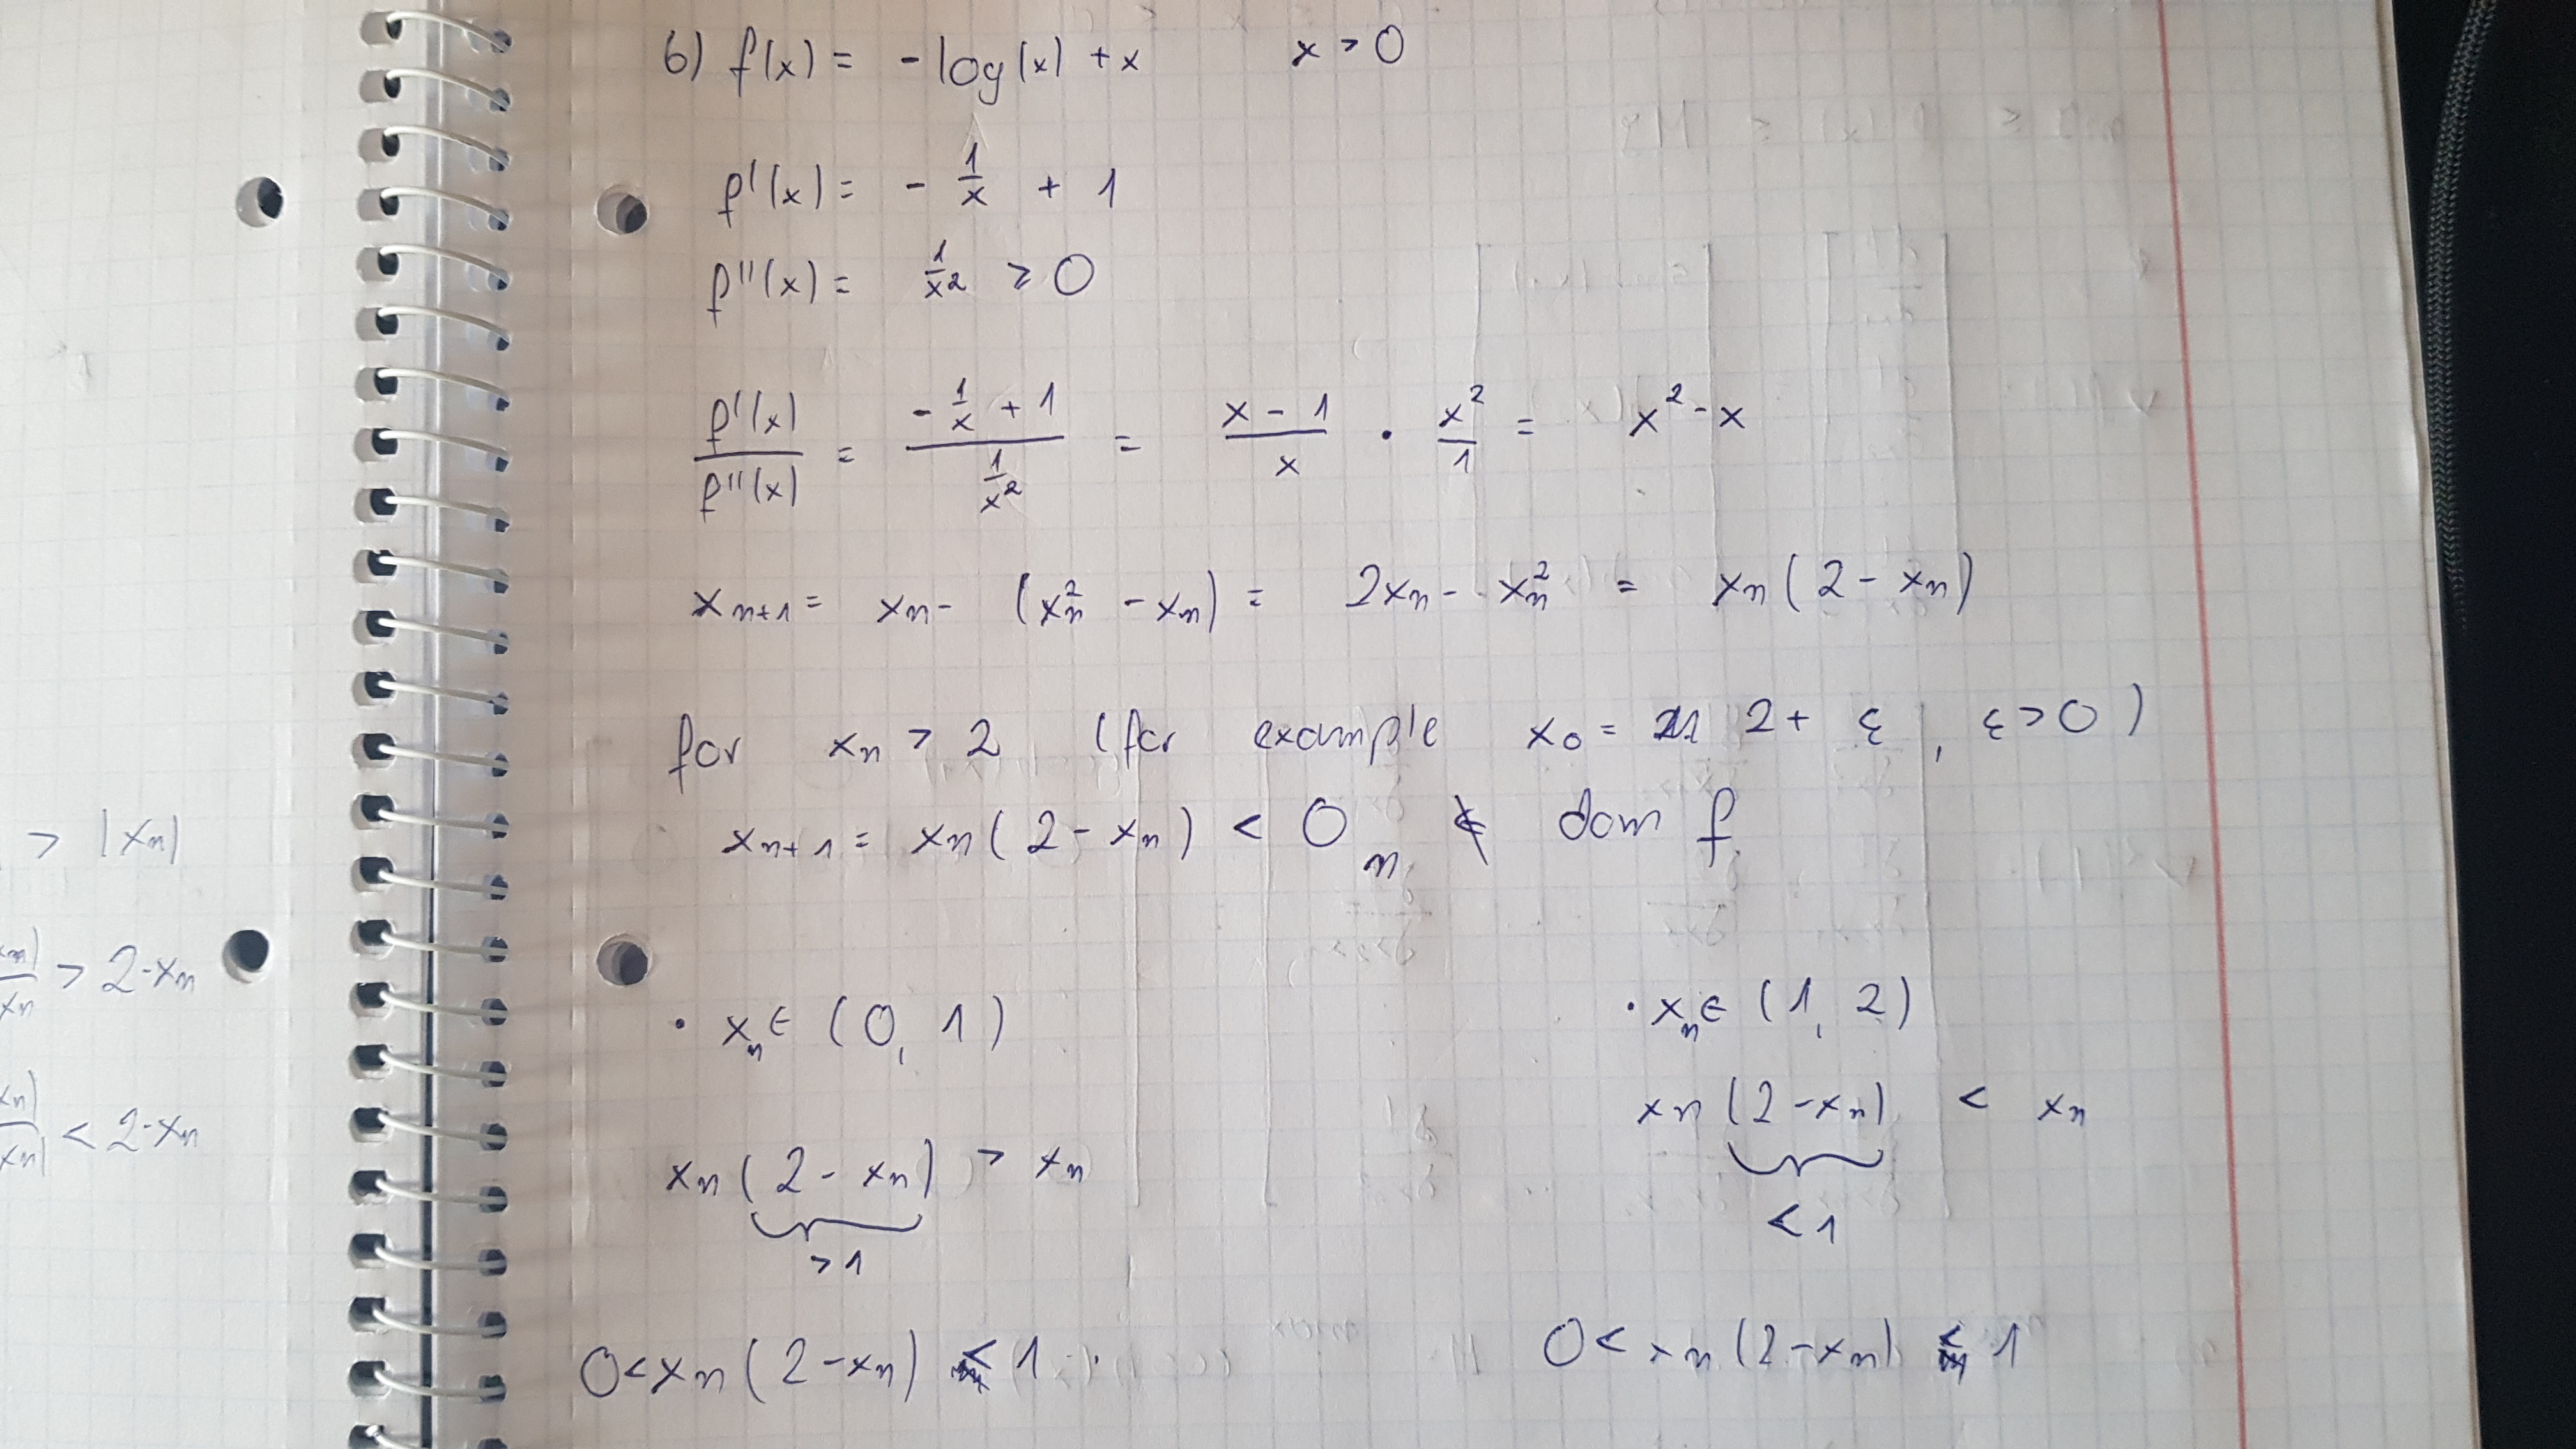 > |xₙ|
> 2-xₙ
< 2-xₙ
b) f(x) = -log(x) + x x > 0
f'(x) = - 1/x + 1
f''(x) = 1/x² ≥ 0
f'(x)/f''(x) = (-1/x + 1)/(1/x²) = (x-1)/x · x²/1 = x² - x
xₙ₊₁ = xₙ - (xₙ² - xₙ) = 2xₙ - xₙ² = xₙ(2 - xₙ)
for xₙ > 2 (for example x₀ = 2 + ε, ε > 0)
xₙ₊₁ = xₙ(2 - xₙ) < 0 ∉ dom f
• xₙ ∈ (0, 1) • xₙ ∈ (1, 2)
xₙ(2 - xₙ) > xₙ xₙ(2 - xₙ) < xₙ
>1 <1
0 < xₙ(2 - xₙ) < 1 0 < xₙ(2 - xₙ) < 1